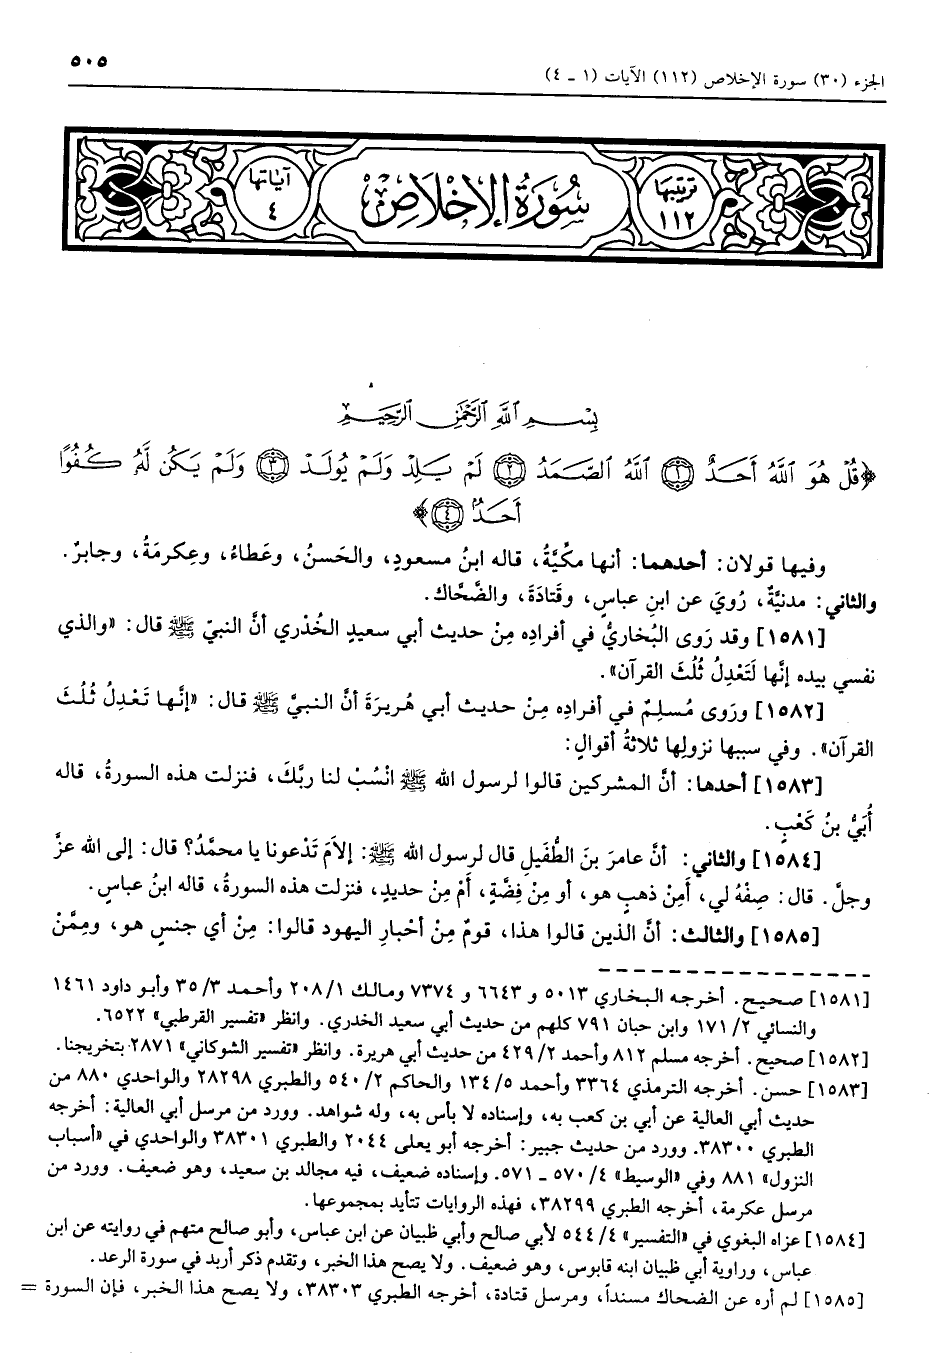 الجزء (٣٠) سورة الإخلاص (١١٢) الآيات (١ ـ ٤)
٥٠٥
ترتيبها
١١٢
سُورَةُ الإِخْلَاصِ
آيَاتها
٤
بِسْمِ ٱللَّهِ ٱلرَّحْمَٰنِ ٱلرَّحِيمِ
﴿قُلْ هُوَ ٱللَّهُ أَحَدٌ ۝١ ٱللَّهُ ٱلصَّمَدُ ۝٢ لَمْ يَلِدْ وَلَمْ يُولَدْ ۝٣ وَلَمْ يَكُن لَّهُۥ كُفُوًا
أَحَدٌۢ ۝٤﴾
وفيها قولان: أحدهما: أنها مكِّيَّةُ، قاله ابنُ مسعودٍ، والحَسنُ، وعَطاءُ، وعِكرمَةُ، وجابرٌ.
والثاني: مدنيَّةٌ، رُويَ عن ابنِ عباسٍ، وقَتادَةَ، والضَّحَّاك.
[١٥٨١] وقد رَوى البُخاريُّ في أفرادِه مِنْ حديث أبي سعيدٍ الخُدْري أنَّ النبيّ ﷺ قال: «والذي
نفسي بيده إنَّها لَتَعْدِلُ ثُلُثَ القرآن».
[١٥٨٢] ورَوى مُسلِمٌ في أفرادِه مِنْ حديث أبي هُريرَةَ أنَّ النبيَّ ﷺ قال: «إنَّها تَعْدِلُ ثُلُثَ
القرآن». وفي سببها نزولِها ثلاثةُ أقوالٍ:
[١٥٨٣] أحدها: أنَّ المشركين قالوا لرسول الله ﷺ انْسُبْ لنا ربَّكَ، فنزلت هذه السورةُ، قاله
أُبَيُّ بنُ كَعْبٍ.
[١٥٨٤] والثاني: أنَّ عامرَ بنَ الطُّفَيلِ قال لرسول الله ﷺ: إلامَ تَدْعونا يا محمَّدُ؟ قال: إلى الله عزَّ
وجلَّ. قال: صِفْهُ لي، أمِنْ ذهبٍ هو، أو مِنْ فِضَّةٍ، أمْ مِن حديدٍ، فنزلت هذه السورةُ، قاله ابنُ عباسٍ.
[١٥٨٥] والثالث: أنَّ الذين قالوا هذا، قومٌ مِنْ أحْبارِ اليهود قالوا: مِنْ أي جنسٍ هو، ومِمَّنْ
[١٥٨١] صحيح. أخرجه البخاري ٥٠١٣ و ٦٦٤٣ و ٧٣٧٤ ومالك ٢٠٨/١ وأحمد ٣٥/٣ وأبو داود ١٤٦١
والنسائي ٢/ ١٧١ وابن حبان ٧٩١ كلهم من حديث أبي سعيد الخدري. وانظر «تفسير القرطبي» ٦٥٢٢.
[١٥٨٢] صحيح. أخرجه مسلم ٨١٢ وأحمد ٤٢٩/٢ من حديث أبي هريرة. وانظر «تفسير الشوكاني» ٢٨٧١ بتخريجنا.
[١٥٨٣] حسن. أخرجه الترمذي ٣٣٦٤ وأحمد ١٣٤/٥ والحاكم ٥٤٠/٢ والطبري ٢٨٢٩٨ والواحدي ٨٨٠ من
حديث أبي العالية عن أبي بن كعب به، وإسناده لا بأس به، وله شواهد. وورد من مرسل أبي العالية: أخرجه
الطبري ٣٨٣٠٠. وورد من حديث جبير: أخرجه أبو يعلى ٢٠٤٤ والطبري ٣٨٣٠١ والواحدي في «أسباب
النزول» ٨٨١ وفي «الوسيط» ٤/ ٥٧٠ ـ ٥٧١. وإسناده ضعيف، فيه مجالد بن سعيد، وهو ضعيف. وورد من
مرسل عكرمة، أخرجه الطبري ٣٨٢٩٩، فهذه الروايات تتأيد بمجموعها.
[١٥٨٤] عزاه البغوي في «التفسير» ٤/ ٥٤٤ لأبي صالح وأبي ظبيان عن ابن عباس، وأبو صالح متهم في روايته عن ابن
عباس، وراوية أبي ظبيان ابنه قابوس، وهو ضعيف. ولا يصح هذا الخبر، وتقدم ذكر أربد في سورة الرعد.
[١٥٨٥] لم أره عن الضحاك مسنداً، ومرسل قتادة، أخرجه الطبري ٣٨٣٠٣، ولا يصح هذا الخبر، فإن السورة =